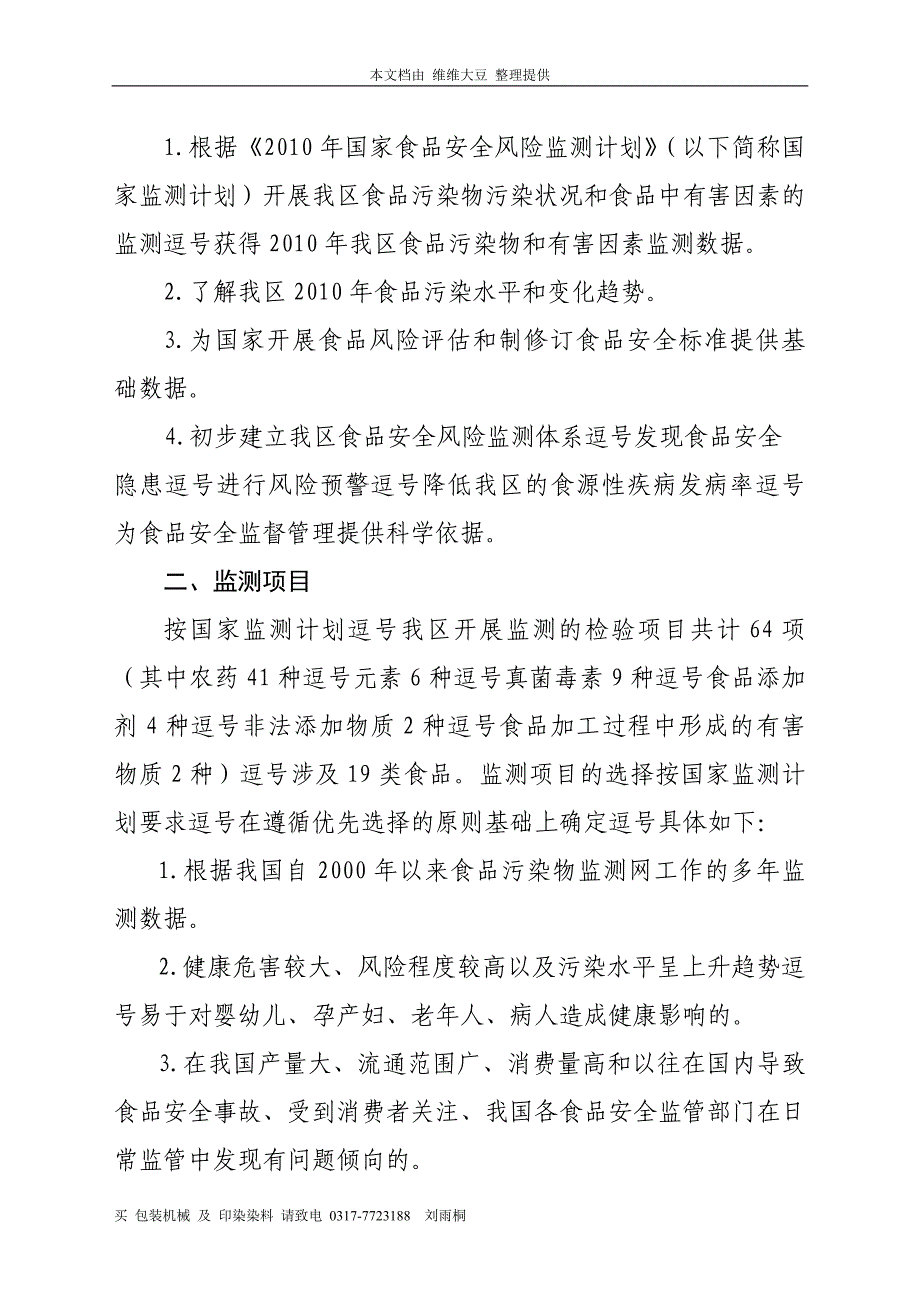 本文档由 维维大豆 整理提供
1.根据《2010年国家食品安全风险监测计划》（以下简称国
家监测计划）开展我区食品污染物污染状况和食品中有害因素的
监测逗号获得2010年我区食品污染物和有害因素监测数据。
2.了解我区2010年食品污染水平和变化趋势。
3.为国家开展食品风险评估和制修订食品安全标准提供基
础数据。
4.初步建立我区食品安全风险监测体系逗号发现食品安全
隐患逗号进行风险预警逗号降低我区的食源性疾病发病率逗号
为食品安全监督管理提供科学依据。
二、监测项目
按国家监测计划逗号我区开展监测的检验项目共计64项
（其中农药41种逗号元素6种逗号真菌毒素9种逗号食品添加
剂4种逗号非法添加物质2种逗号食品加工过程中形成的有害
物质2种）逗号涉及19类食品。监测项目的选择按国家监测计
划要求逗号在遵循优先选择的原则基础上确定逗号具体如下：
1.根据我国自2000年以来食品污染物监测网工作的多年监
测数据。
2.健康危害较大、风险程度较高以及污染水平呈上升趋势逗
号易于对婴幼儿、孕产妇、老年人、病人造成健康影响的。
3.在我国产量大、流通范围广、消费量高和以往在国内导致
食品安全事故、受到消费者关注、我国各食品安全监管部门在日
常监管中发现有问题倾向的。
买 包装机械 及 印染染料 请致电 0317-7723188 刘雨桐